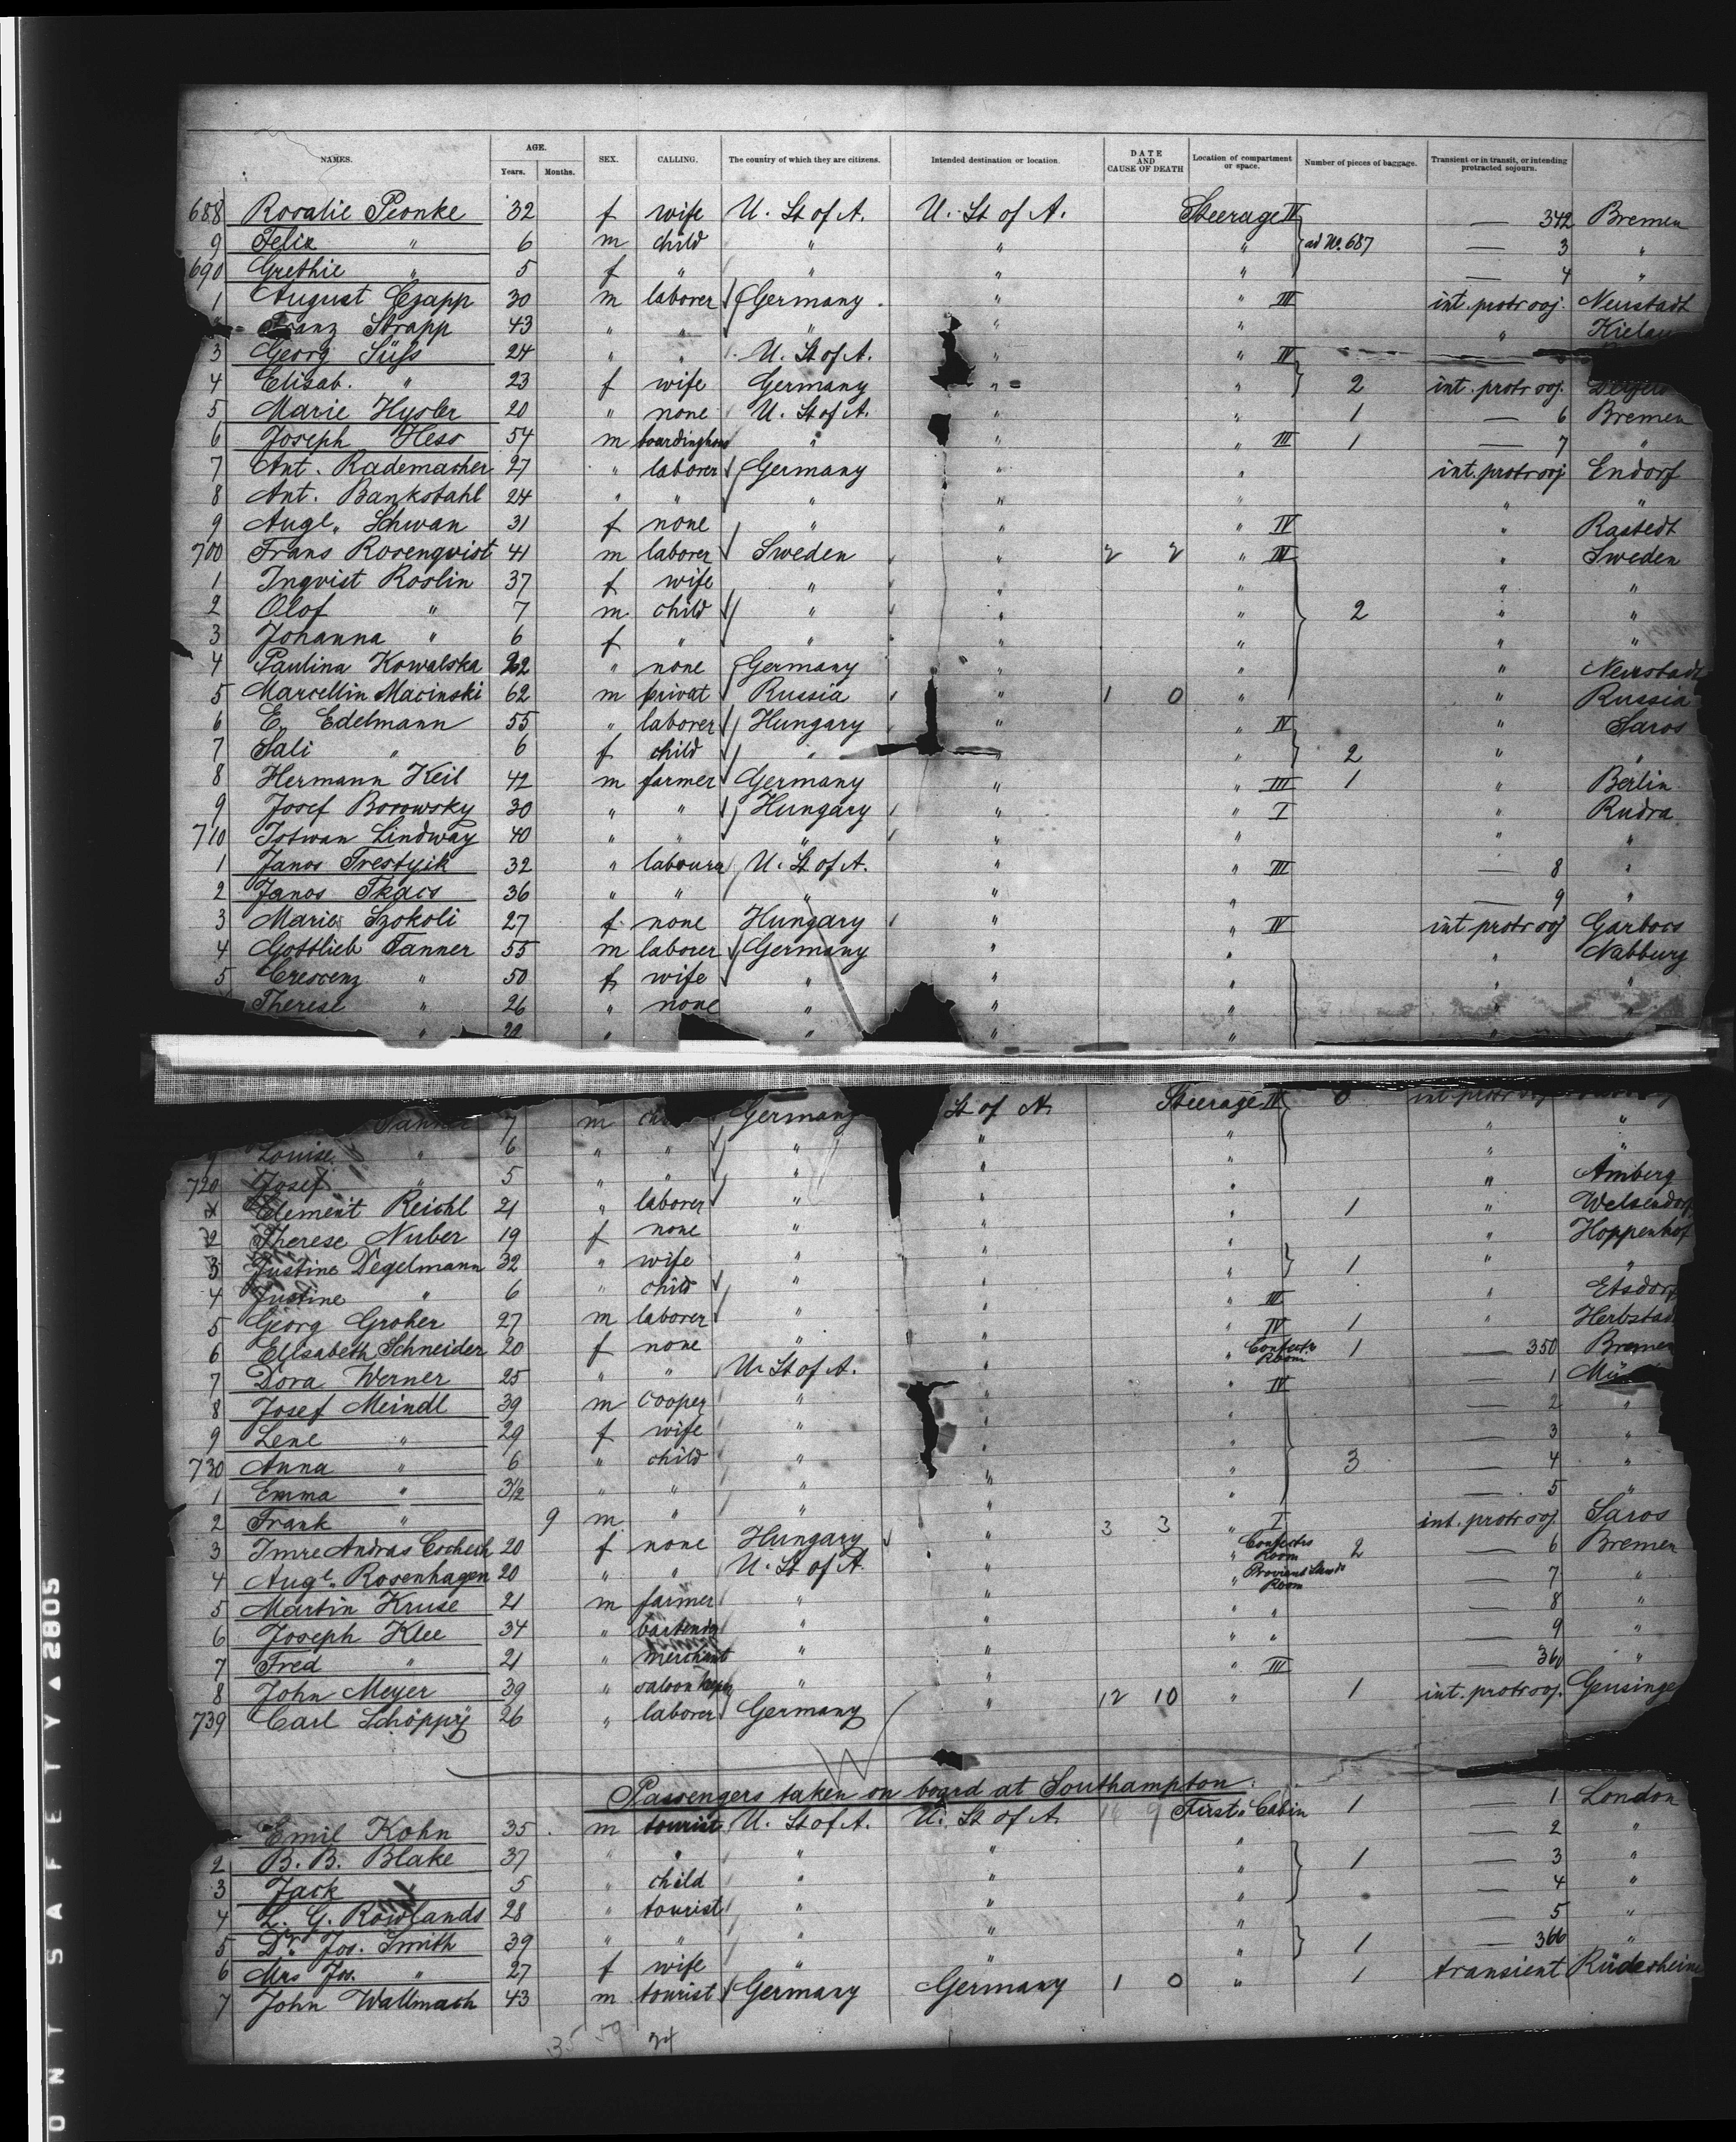 NAMES. AGE. Years. Months. SEX. CALLING. The country of which they are citizens. Intended destination or location. DATE AND CAUSE OF DEATH Location of compartment or space. Number of pieces of baggage. Transient or in transit, or intending protracted sojourn.
688 Rosalie Peonke 32 f wife U. St of A. U. St of A. Steerage IV — 342 Bremen
9 Felix " 6 m child " " " ad No. 687 — 3 "
690 Grethie " 5 f " " " " — 4 "
1 August Czapp 30 m laborer Germany " " III int. protr soj. Neustadt
Franz Strapp 43 " " " " " " Kielau
3 Georg Süss 24 " " U. St of A. " " IV
4 Elisab. " 23 f wife Germany " " 2 int. protr soj.
5 Marie Hysler 20 " none U. St of A. " " 1 — 6 Bremen
6 Joseph Hess 54 m boardinghous " " " III 1 — 7 "
7 Ant. Rademacher 27 " laborer Germany " " int. protr soj Endorf
8 Ant. Bankstahl 24 " " " " " " "
9 Augl. Schwan 31 f none " " " IV " Rastedt
700 Frans Rosenqvist 41 m laborer Sweden " 2 2 " IV " Sweden
1 Inqvist Roslin 37 f wife " " " " "
2 Olof " 7 m child " " " 2 " "
3 Johanna " 6 f " " " " " "
4 Paulina Kowalska 22 " none Germany " " " Neustadt
5 Marcellin Macinski 62 m privat Russia " 1 0 " " Russia
6 E. Edelmann 55 " laborer Hungary " " IV " Saros
7 Sali " 6 f child " " " 2 " "
8 Hermann Keil 42 m farmer Germany " " III 1 " Berlin
9 Josef Borowsky 30 " " Hungary " " I " Rudra
710 Istwan Lindway 40 " " " " " " "
1 Janos Trestyik 32 " labourer U. St of A. " " III — 8 "
2 Janos Tkacs 36 " " " " " — 9 "
3 Marie Szokoli 27 f none Hungary " " IV int. protr soj Garbocs
4 Gottlieb Tanner 55 m laborer Germany " " " Nabburg
5 Crescenz " 50 f wife " " " " "
Therese " 26 " none " " " " "
" 20 " " " " " "
Tanner 7 m Germany St of A. Steerage IV int. protr soj
9 Louise " 6 " " " " " " "
720 Josef " 5 " " " " " " "
Element Reichl 21 " laborer " " " " Amberg
2 Therese Nuber 19 f none " " " 1 " Welsendorf
3 Justine Degelmann 32 " wife " " " " Hoppenhof
4 Justine " 6 " child " " " 1 " "
5 Georg Groher 27 m laborer " " " III " Etsdorf
6 Elisabeth Schneider 20 f none " " " IV 1 " Herbstad
7 Dora Werner 25 " " U. St of A. " " Confect's Room 1 — 350 Bremen
8 Josef Meindl 39 m cooper " " " IV — 1
9 Lene " 29 f wife " " " — 2 "
730 Anna " 6 " child " " " — 3 "
1 Emma " 3½ " " " " " 3 — 4 "
2 Frank " 9 m " " " " — 5 "
3 Imre Andras Cochech 20 f none Hungary " 3 3 " I int. protr soj Saros
4 Augl. Rosenhagen 20 " " U. St of A. " " Confect's Room 2 — 6 Bremen
5 Martin Kruse 21 m farmer " " " Room — 7 "
6 Joseph Klee 34 " bartender " " " " — 8 "
7 Fred " 21 " merchant " " " " — 9 "
8 John Meyer 39 " saloon keeper " " " III — 360 "
739 Carl Schöppÿ 26 " laborer Germany " 12 10 " 1 int. protr soj. Gensinge
Passengers taken on board at Southampton.
Emil Kohn 35 m tourist U. St of A. U. St of A. 16 9 First Cabin 1 — 1 London
2 B. B. Blake 37 " " " " " — 2 "
3 Jack " 5 " child " " " 1 — 3 "
4 L. G. Rowlands 28 " tourist " " " — 4 "
5 Dr. Jos. Smith 39 " " " " " — 5 "
6 Mrs Jos. " 27 f wife " " " 1 — 366 "
7 John Wallmach 43 m tourist Germany Germany 1 0 " 1 transient Rüdesheim
35 59 24
ONT SAFETY ▲ 2805